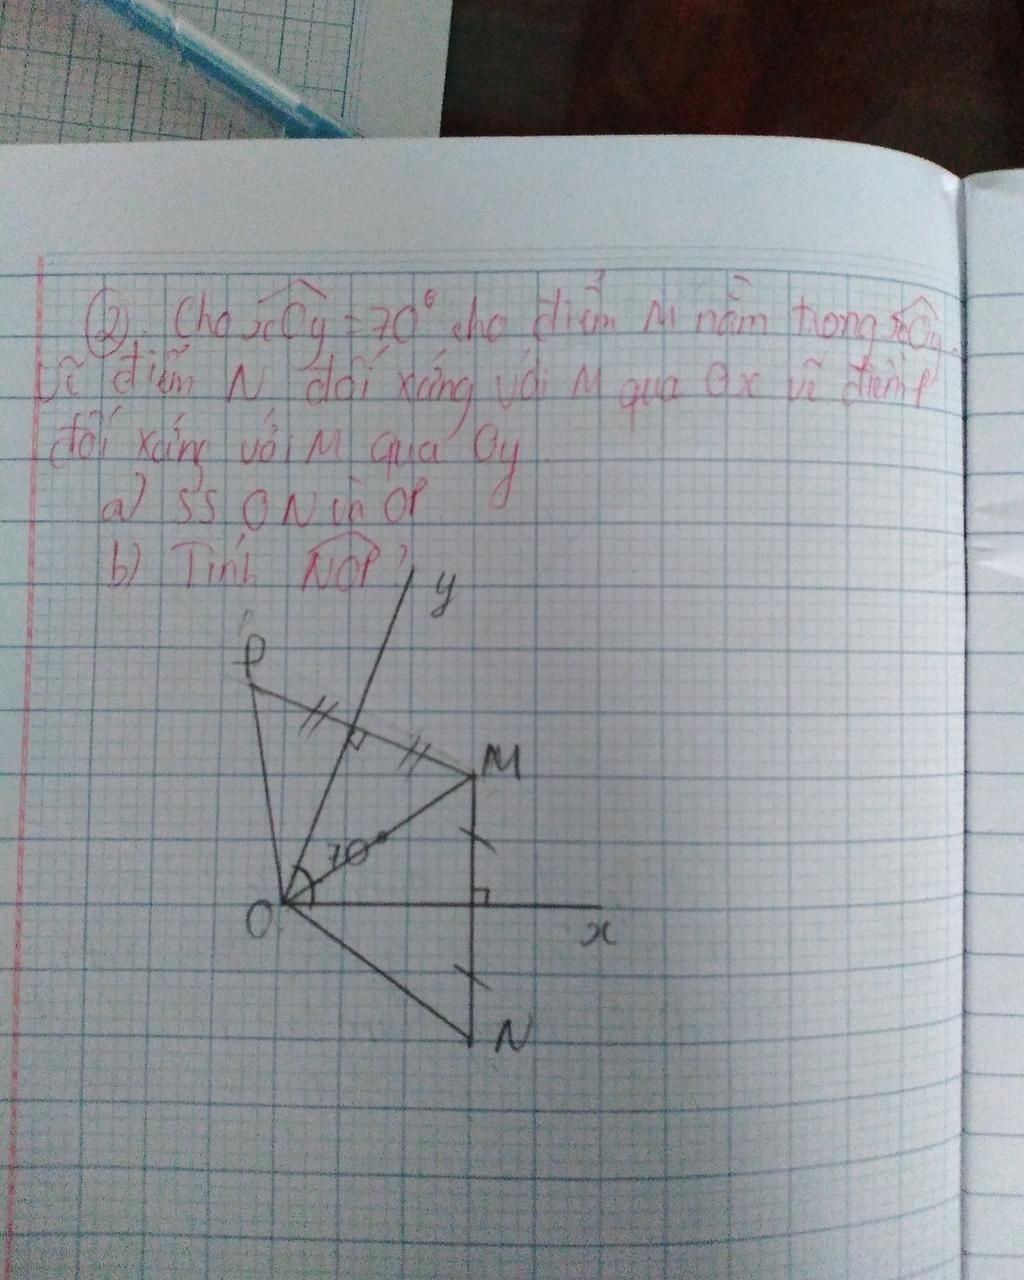 ②. Cho xOy = 70° cho điểm M nằm trong xOy.
Vẽ điểm N đối xứng với M qua Ox vẽ điểm P
đối xứng với M qua Oy
a) SS ON và OP
b) Tính NOP?
y
P
M
70°
O
x
N